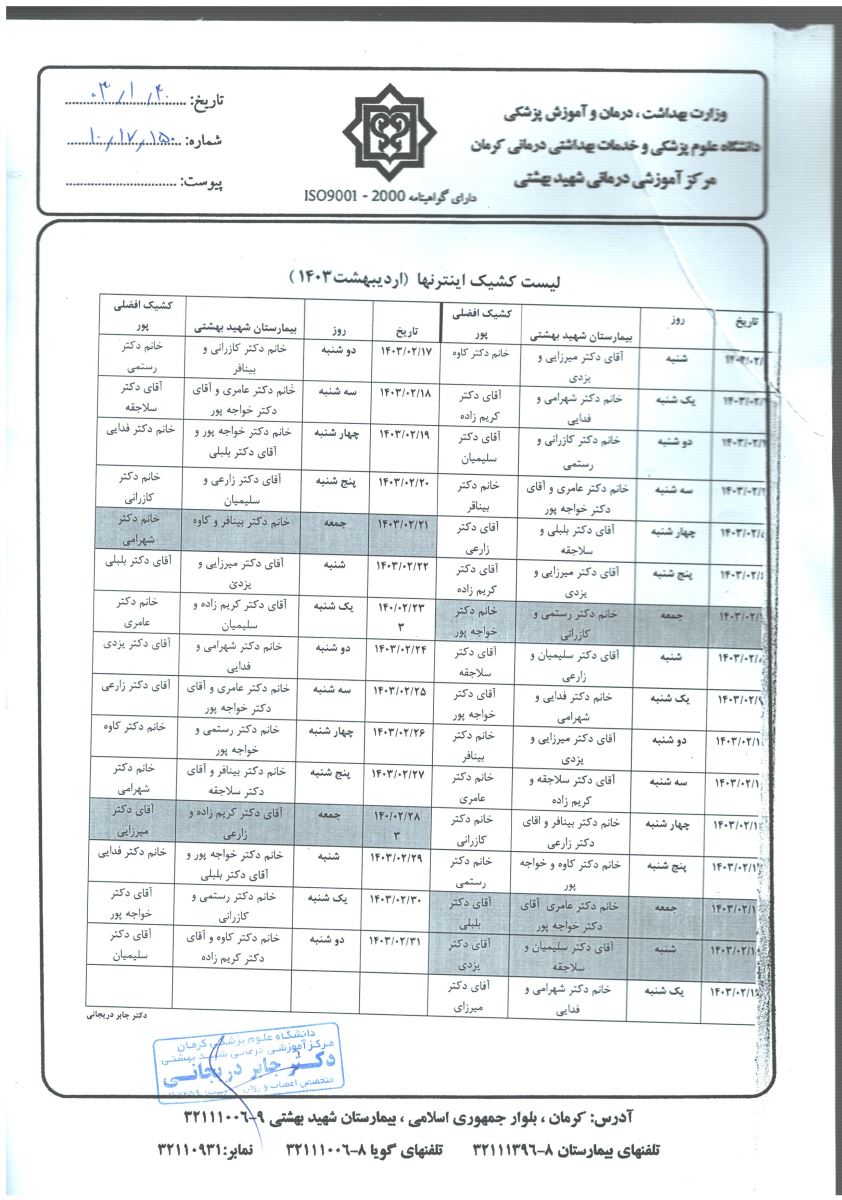 وزارت بهداشت، درمان و آموزش پزشکی
دانشگاه علوم پزشکی و خدمات بهداشتی درمانی کرمان
مرکز آموزشی درمانی شهید بهشتی
دارای گواهینامه ISO9001 - 2000
تاریخ:
شماره: ۱۰,۱۷,۱۵۰
پیوست:
لیست کشیک اینترنها (اردیبهشت۱۴۰۳)
تاریخ روز بیمارستان شهید بهشتی کشیک افضلی پور
شنبه آقای دکتر میرزایی و یزدی خانم دکتر کاوه
یک شنبه خانم دکتر شهرامی و فدایی آقای دکتر کریم زاده
دو شنبه خانم دکتر کازرانی و رستمی آقای دکتر سلیمیان
سه شنبه خانم دکتر عامری و آقای دکتر خواجه پور خانم دکتر بینافر
چهار شنبه آقای دکتر بلبلی و سلاجقه آقای دکتر زارعی
پنج شنبه آقای دکتر میرزایی و یزدی آقای دکتر کریم زاده
جمعه خانم دکتر رستمی و کازرانی خانم دکتر خواجه پور
شنبه آقای دکتر سلیمیان و زارعی آقای دکتر سلاجقه
یک شنبه خانم دکتر فدایی و شهرامی آقای دکتر خواجه پور
دو شنبه آقای دکتر میرزایی و یزدی خانم دکتر بینافر
سه شنبه آقای دکتر سلاجقه و کریم زاده خانم دکتر عامری
چهار شنبه خانم دکتر بینافر و اقای دکتر زارعی خانم دکتر کازرانی
پنج شنبه خانم دکتر کاوه و خواجه پور خانم دکتر رستمی
جمعه خانم دکتر عامری آقای دکتر خواجه پور آقای دکتر بلبلی
شنبه آقای دکتر سلیمیان و سلاجقه آقای دکتر یزدی
یک شنبه خانم دکتر شهرامی و فدایی آقای دکتر میرزای
تاریخ روز بیمارستان شهید بهشتی کشیک افضلی پور
۱۴۰۳/۰۲/۱۷ دو شنبه خانم دکتر کازرانی و بینافر خانم دکتر رستمی
۱۴۰۳/۰۲/۱۸ سه شنبه خانم دکتر عامری و آقای دکتر خواجه پور آقای دکتر سلاجقه
۱۴۰۳/۰۲/۱۹ چهار شنبه خانم دکتر خواجه پور و آقای دکتر بلبلی خانم دکتر فدایی
۱۴۰۳/۰۲/۲۰ پنج شنبه آقای دکتر زارعی و سلیمیان خانم دکتر کازرانی
۱۴۰۳/۰۲/۲۱ جمعه خانم دکتر بینافر و کاوه خانم دکتر شهرامی
۱۴۰۳/۰۲/۲۲ شنبه آقای دکتر میرزایی و یزدی آقای دکتر بلبلی
۱۴۰/۰۲/۲۳ ۳ یک شنبه آقای دکتر کریم زاده و سلیمیان خانم دکتر عامری
۱۴۰۳/۰۲/۲۴ دو شنبه خانم دکتر شهرامی و فدایی آقای دکتر یزدی
۱۴۰۳/۰۲/۲۵ سه شنبه خانم دکتر عامری و آقای دکتر خواجه پور آقای دکتر زارعی
۱۴۰۳/۰۲/۲۶ چهار شنبه خانم دکتر رستمی و خواجه پور خانم دکتر کاوه
۱۴۰۳/۰۲/۲۷ پنج شنبه خانم دکتر بینافر و آقای دکتر سلاجقه خانم دکتر شهرامی
۱۴۰/۰۲/۲۸ ۳ جمعه آقای دکتر کریم زاده و زارعی آقای دکتر میرزایی
۱۴۰۳/۰۲/۲۹ شنبه خانم دکتر خواجه پور و آقای دکتر بلبلی خانم دکتر فدایی
۱۴۰۳/۰۲/۳۰ یک شنبه خانم دکتر رستمی و کازرانی آقای دکتر خواجه پور
۱۴۰۳/۰۲/۳۱ دو شنبه خانم دکتر کاوه و آقای دکتر کریم زاده آقای دکتر سلیمیان
دکتر جابر دریجانی
دانشگاه علوم پزشکی کرمان
مرکز آموزشی درمانی شهید بهشتی
دکتر جابر دریجانی
متخصص اعصاب و روان
آدرس: کرمان ، بلوار جمهوری اسلامی ، بیمارستان شهید بهشتی ۹-۳۲۱۱۱۰۰۶
تلفنهای بیمارستان ۸-۳۲۱۱۱۳۹۶ تلفنهای گویا ۸-۳۲۱۱۱۰۰۶ نمابر:۳۲۱۱۰۹۳۱